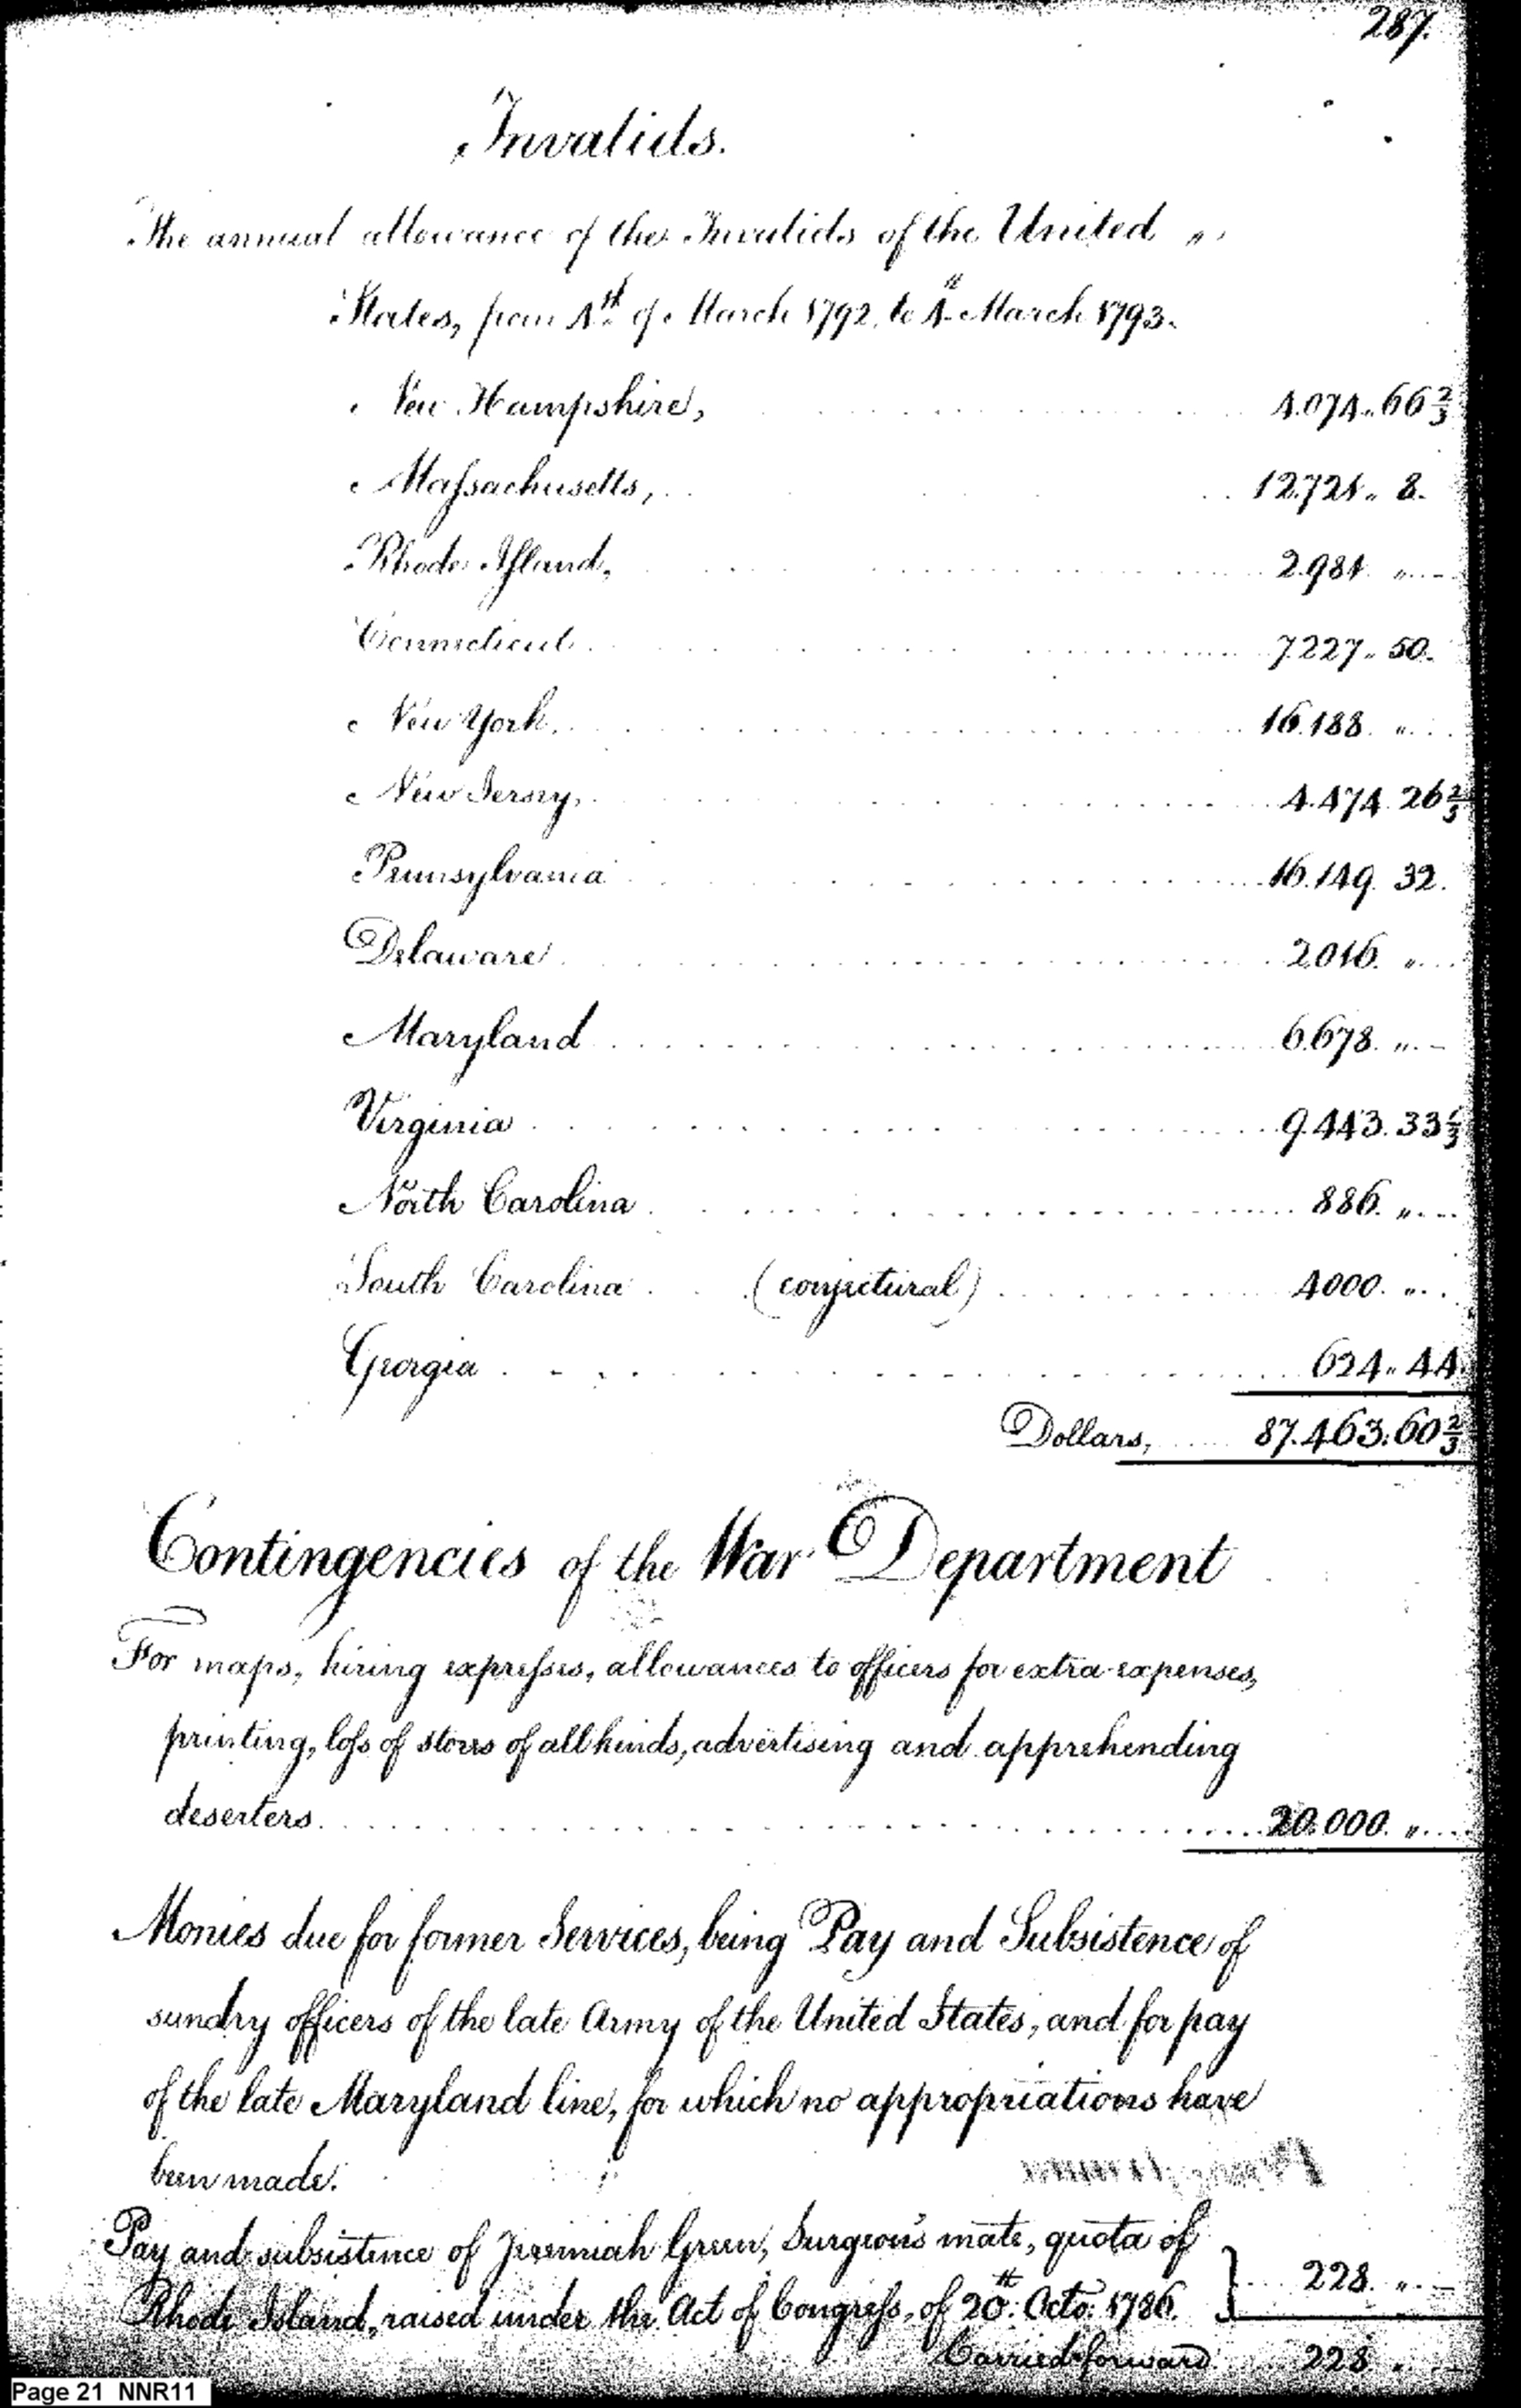 287.
Invalids.
The annual allowance of the Invalids of the United "
States, from 4th of March 1792, to 4th March 1793.
New Hampshire, 4.074.. 66 2/3
Massachusetts, 12.721.. 8.
Rhode Island, 2.981. "
Connecticut 7.227.. 50.
New York. 16.188. "
New Jersey, 4.474. 26 2/3
Pennsylvania 16.149. 32.
Delaware 2.016. "
Maryland 6.678. "
Virginia 9.443. 33 1/3
North Carolina 886. "
South Carolina (conjectural) 4000. "
Georgia 624.. 44.
Dollars, 87.463.60 2/3
Contingencies of the War Department
For maps, hiring expresses, allowances to officers for extra expenses,
printing, loss of stores of all kinds, advertising and apprehending
deserters. 20.000. "
Monies due for former Services, being Pay and Subsistence of
sundry officers of the late Army of the United States, and for pay
of the late Maryland line, for which no appropriations have
been made.
Pay and subsistence of Jeremiah Green, Surgeon's mate, quota of
Rhode Island, raised under the Act of Congress, of 20th. Octo: 1786. } 228. "
Carried forward 228 "
Page 21 NNR11